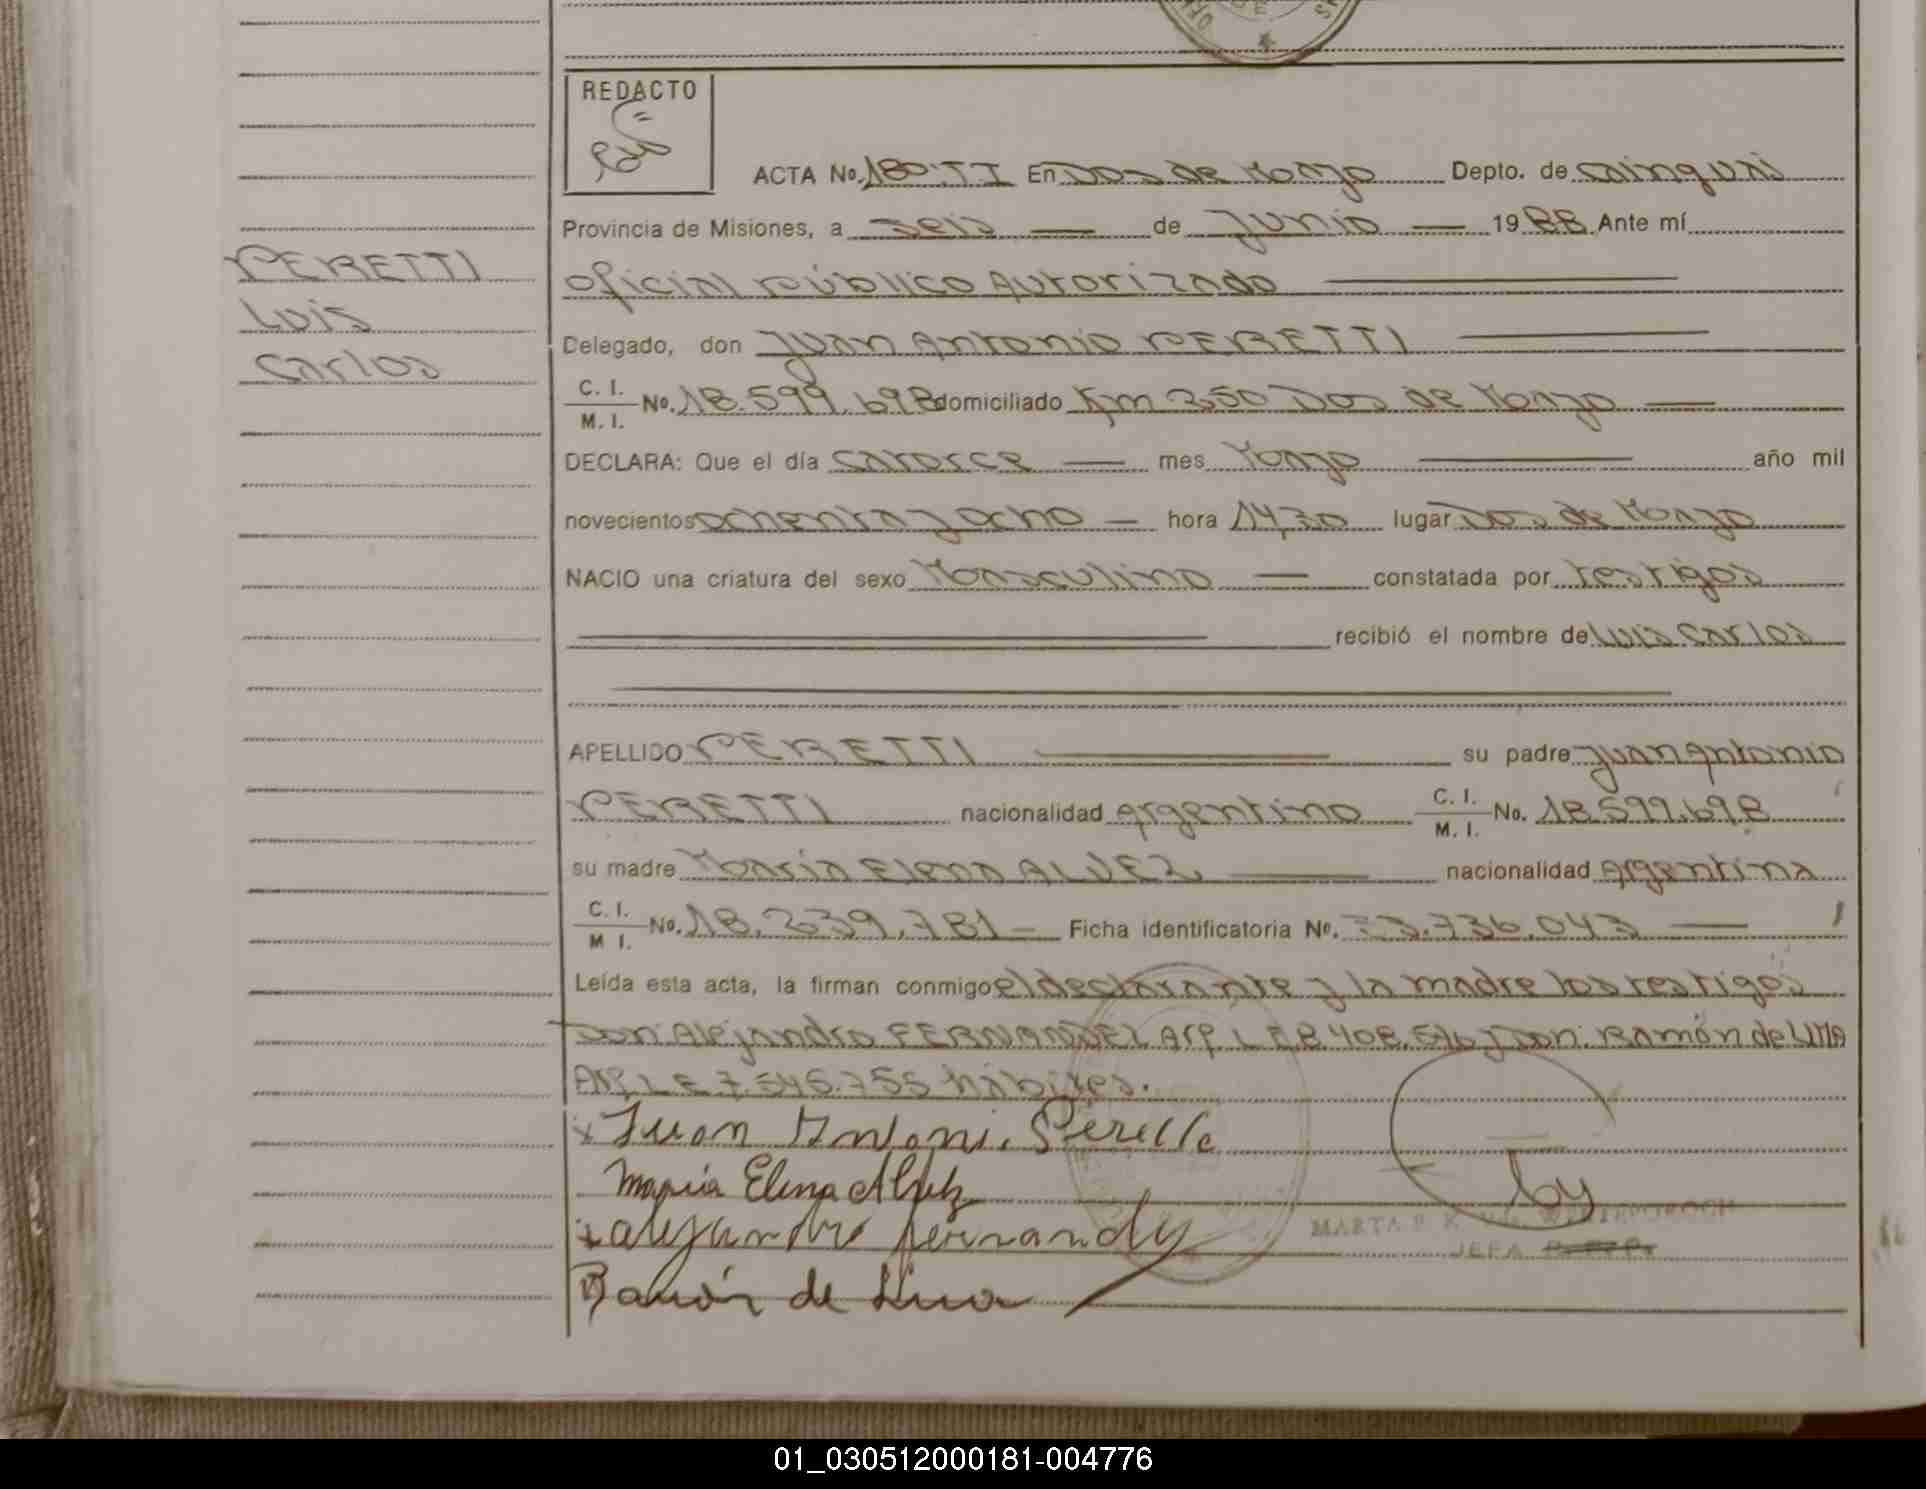 REDACTO
ACTA No. 180 TI En Dos de Mayo Depto. de Cainguas
Provincia de Misiones, a seis de Junio 1988 Ante mí
PERETTI
Oficial Público Autorizado
Luis
Delegado, don Juan Antonio PERETTI
Carlos
C. I.
M. I. No. 18.599.698 domiciliado Km 250 Dos de Mayo
DECLARA: Que el día catorce mes Mayo año mil
novecientos ochenta y ocho hora 14,30 lugar Dos de Mayo
NACIO una criatura del sexo Masculino constatada por testigos
recibió el nombre de Luis Carlos
APELLIDO PERETTI su padre Juan Antonio
PERETTI nacionalidad Argentino C. I. M. I. No. 18.599.698
su madre María Elena ALVEZ nacionalidad Argentina
C. I. M I. No. 18.239.781 Ficha identificatoria No. 33.736.043
Leída esta acta, la firman conmigo el declarante y la madre los testigos
Don Alejandro FERNANDEZ Arg. L E 8.408. y Don. Ramón de LIMA
Arg. L E 7.545.755 hábiles.
Juan Antoni
María Elena Alvez
alejandro fernandez
Ramón de Lima
MARTA
JEFA
01_030512000181-004776